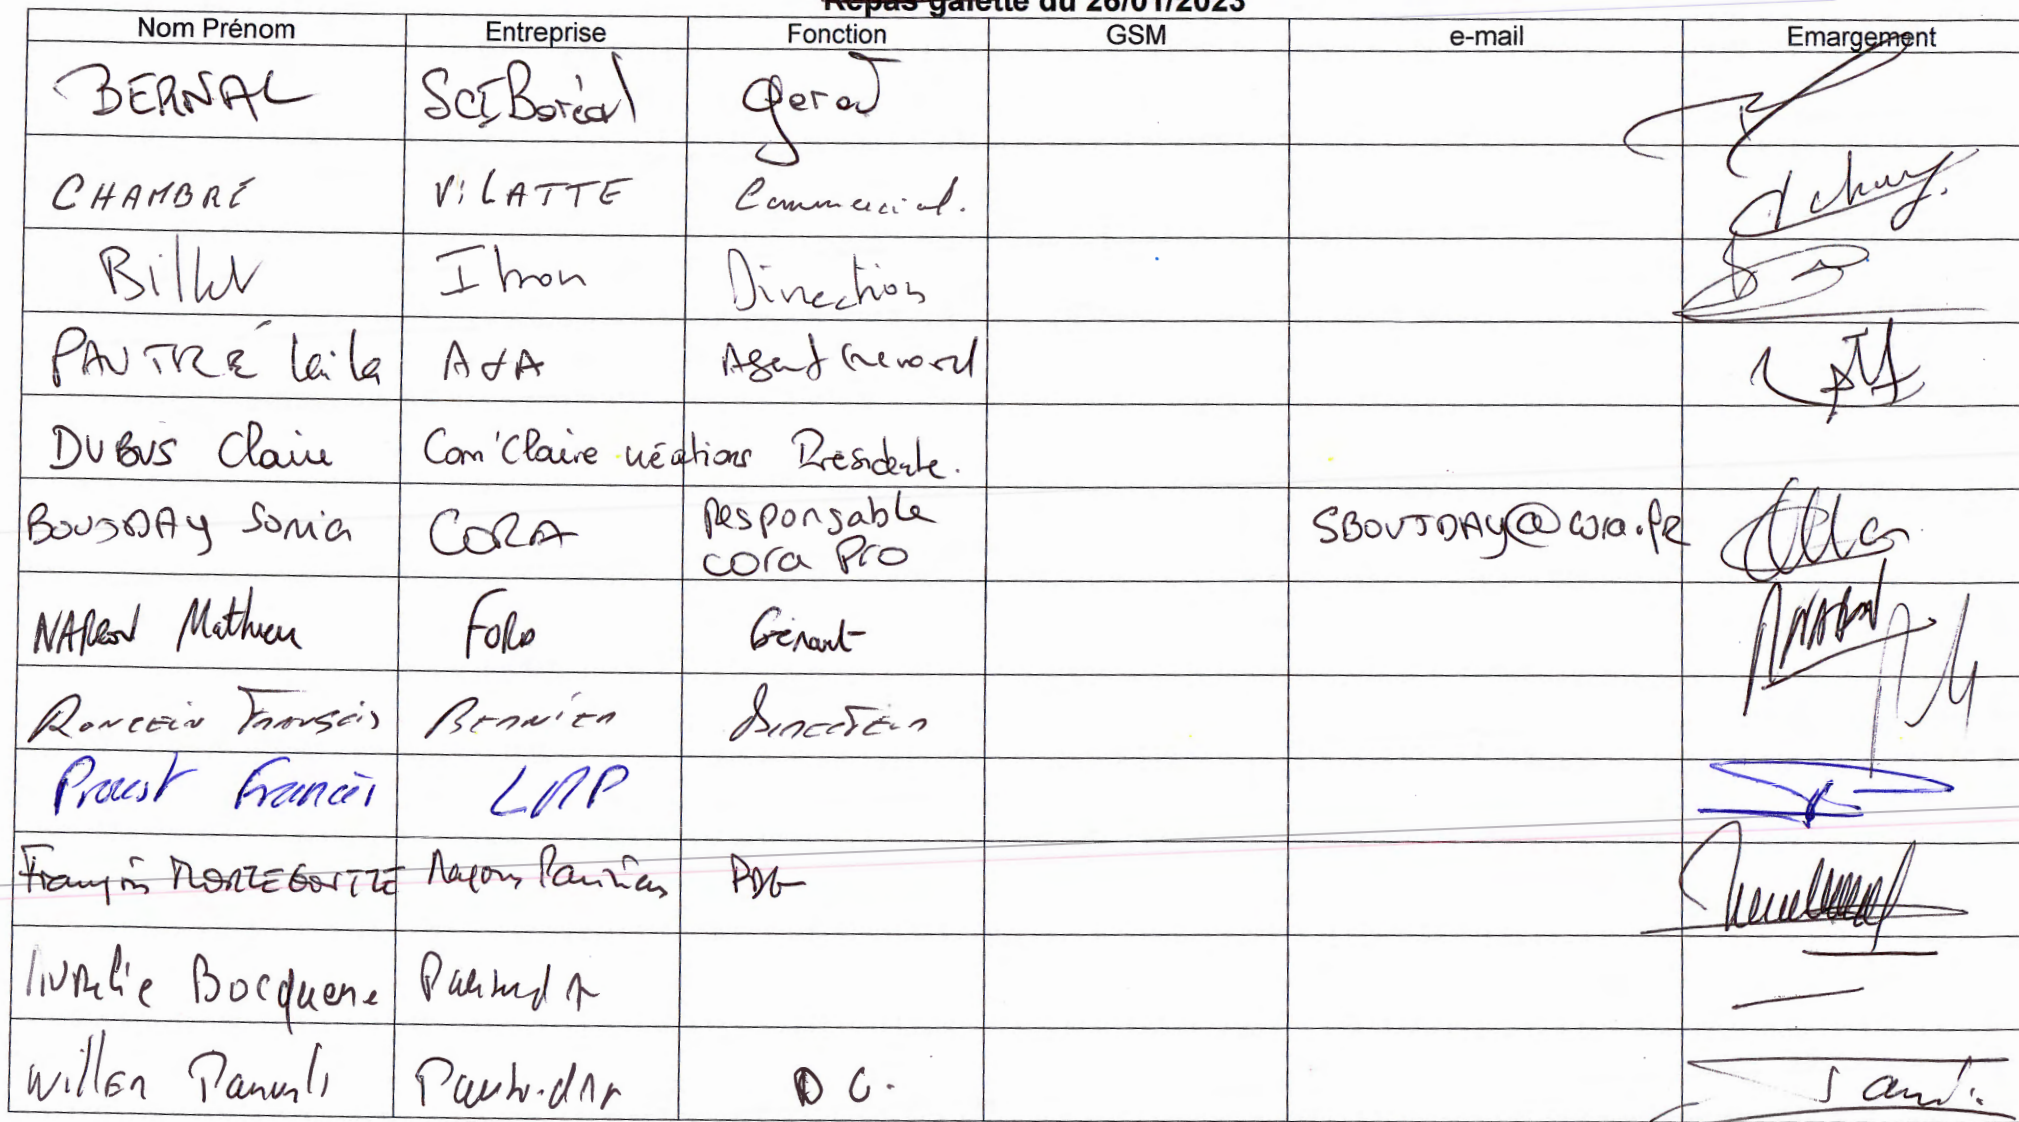 Repas galette du 26/01/2023
Nom Prénom Entreprise Fonction GSM e-mail Emargement
BERNAL SCI Boréal gerant
CHAMBRÉ ViLATTE Commercial.
Billet Itron Direction
PAUTRÉ Leila AdA Agent General
DUBUS Claire Com'Claire créations Présidente.
BOUJDAY Sonia CORA Responsable cora Pro SBOUJDAY@cora.fr
Mathieu FORD Gérant
François Bernier Directeur
Proust Francis LRP
François Maçons Parisiens PDG
Aurélie Bocquene
D C.